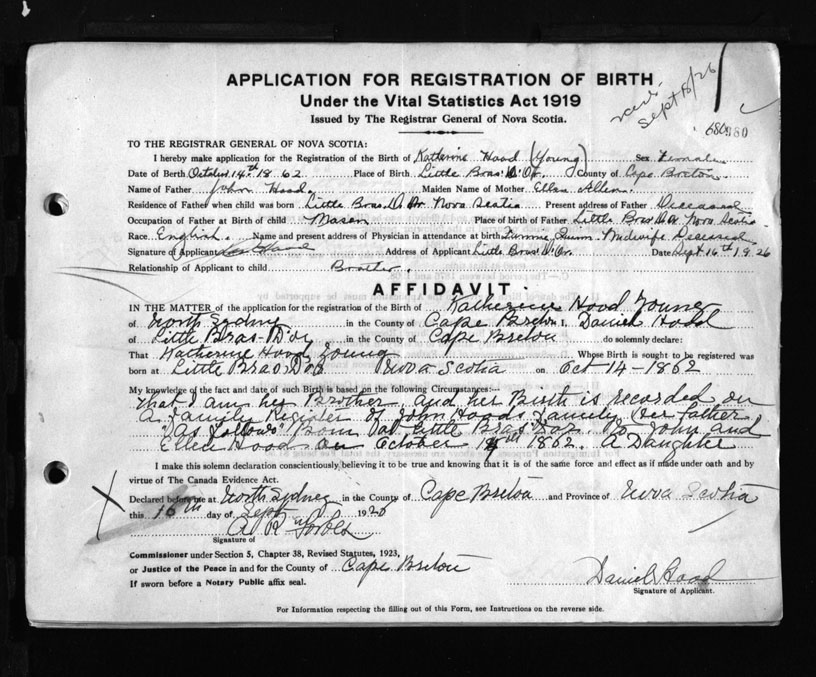 APPLICATION FOR REGISTRATION OF BIRTH
Under the Vital Statistics Act 1919
Issued by The Registrar General of Nova Scotia.
Sept 18/26
680980
TO THE REGISTRAR GENERAL OF NOVA SCOTIA:
I hereby make application for the Registration of the Birth of Katherine Hood (Young) Sex Female
Date of Birth October 14th 1862 Place of Birth Little Bras D'Or County of Cape Breton
Name of Father John Hood Maiden Name of Mother Ellen Allen
Residence of Father when child was born Little Bras D'Or Nova Scotia Present address of Father Deceased
Occupation of Father at Birth of child Mason Place of birth of Father Little Bras D'Or Nova Scotia
Race English. Name and present address of Physician in attendance at birth Midwife Deceased
Signature of Applicant Hood Address of Applicant Little Bras D'Or Date Sept 16th 1926
Relationship of Applicant to child Brother.
AFFIDAVIT
IN THE MATTER of the application for the registration of the Birth of Katherine Hood Young
of North Sydney in the County of Cape Breton I, Daniel Hood
of Little Bras D'Or in the County of Cape Breton do solemnly declare:
That Katherine Hood Young Whose Birth is sought to be registered was
born at Little Bras Dor Nova Scotia on Oct 14-1862
My knowledge of the fact and date of such Birth is based on the following Circumstances:—
that I am her Brother and her Birth is recorded on
a family Register of John Hoods family, Her father
"As follows" Born at Little Bras Dor To John and
Ellen Hood on October 14th 1862. A Daughter
I make this solemn declaration conscientiously believing it to be true and knowing that it is of the same force and effect as if made under oath and by
virtue of The Canada Evidence Act.
Declared before me at North Sydney in the County of Cape Breton and Province of Nova Scotia
this 16th day of Sept 1926
Signature of
Commissioner under Section 5, Chapter 38, Revised Statutes, 1923,
or Justice of the Peace in and for the County of Cape Breton
If sworn before a Notary Public affix seal.
Daniel Hood
Signature of Applicant.
For Information respecting the filling out of this Form, see Instructions on the reverse side.